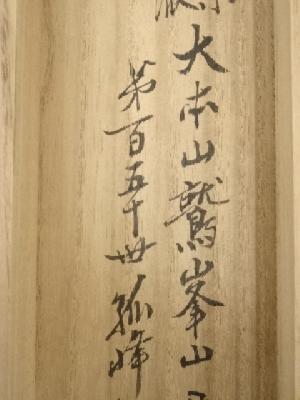 大本山鷲峯山
第百五十世孤峰